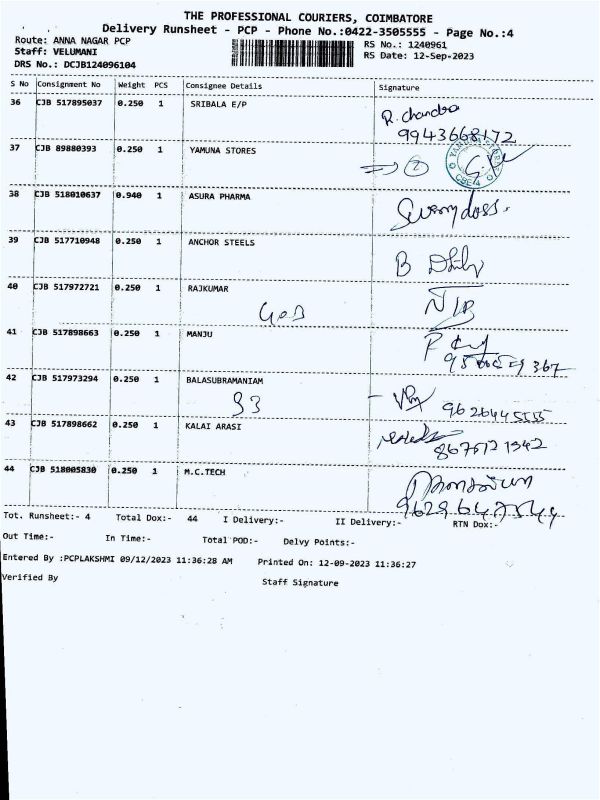 THE PROFESSIONAL COURIERS, COIMBATORE
Delivery Runsheet - PCP - Phone No.:0422-3505555 - Page No.:4
Route: ANNA NAGAR PCP RS No.: 1240961
Staff: VELUMANI RS Date: 12-Sep-2023
DRS No.: DCJB124096104
S No Consignment No Weight PCS Consignee Details Signature
36 CJB 517895037 0.250 1 SRIBALA E/P R. Chandra
9943668172
37 CJB 89880393 0.250 1 YAMUNA STORES
38 CJB 518010637 0.940 1 ASURA PHARMA
39 CJB 517710948 0.250 1 ANCHOR STEELS B
40 CJB 517972721 0.250 1 RAJKUMAR
41 CJB 517898663 0.250 1 MANJU
42 CJB 517973294 0.250 1 BALASUBRAMANIAM
93 9626445555
43 CJB 517898662 0.250 1 KALAI ARASI
44 CJB 518005830 0.250 1 M.C.TECH
Tot. Runsheet:- 4 Total Dox:- 44 I Delivery:- II Delivery:- RTN Dox:-
Out Time:- In Time:- Total POD:- Delvy Points:-
Entered By :PCPLAKSHMI 09/12/2023 11:36:28 AM Printed On: 12-09-2023 11:36:27
Verified By Staff Signature